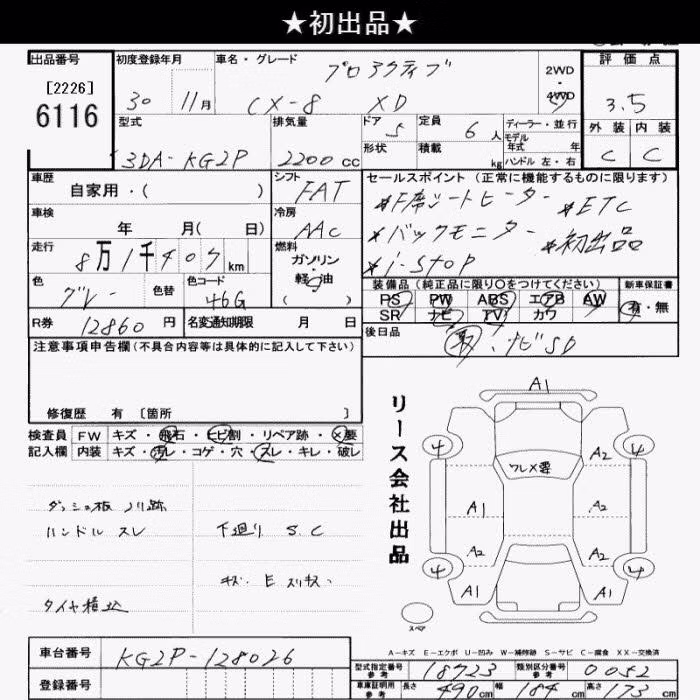 ★初出品★
出品番号 初度登録年月 車名・グレード 評価点
[2226]
6116
30 11月
プロアクティブ
CX-8 XD
2WD・4WD
3.5
外装 内装
C C
型式 排気量 ドア 定員 ディーラー・並行
3DA-KG2P 2200cc 5 6人
モデル年式 年
形状 積載 kg ハンドル 左・右
車歴 シフト セールスポイント(正常に機能するものに限ります)
自家用・( ) FAT
*F席シートヒーター *ETC
車検 冷房
年 月( 日) AAC
*バックモニター *初出品
走行 燃料
8万1千407km ガソリン・軽油( )
*i-stop
色 色替 色コード
グレー 46G
装備品(純正品に限り○をつけてください) 新車保証書
PS PW ABS エアB AW 有・無
SR ナビ TV カワ
R券 12860円 名変通知期限 月 日
後日品
取、ナビSD
注意事項申告欄(不具合内容等は具体的に記入して下さい)
修復歴 有 [箇所 ]
検査員 FW キズ・飛石・ヒビ割・リペア跡・×要
記入欄 内装 キズ・汚レ・コゲ・穴・スレ・キレ・破レ
ダッシュ板 ノリ跡
ハンドル スレ
下廻り S.C
キズ・E スリキズ・
タイヤ積込
リース会社出品
A1
4 4
フレメ要
A2
A1 A2
A2 A2
4 4
A1 A1
スペア
A-キズ E-エクボ U-凹み W-補修跡 S-サビ C-腐食 XX-交換済
車台番号 KG2P-128026
登録番号
型式指定番号 参考 18723 類別区分番号 参考 0052
車庫証明用 参考 長さ 490cm 幅 184cm 高さ 173cm